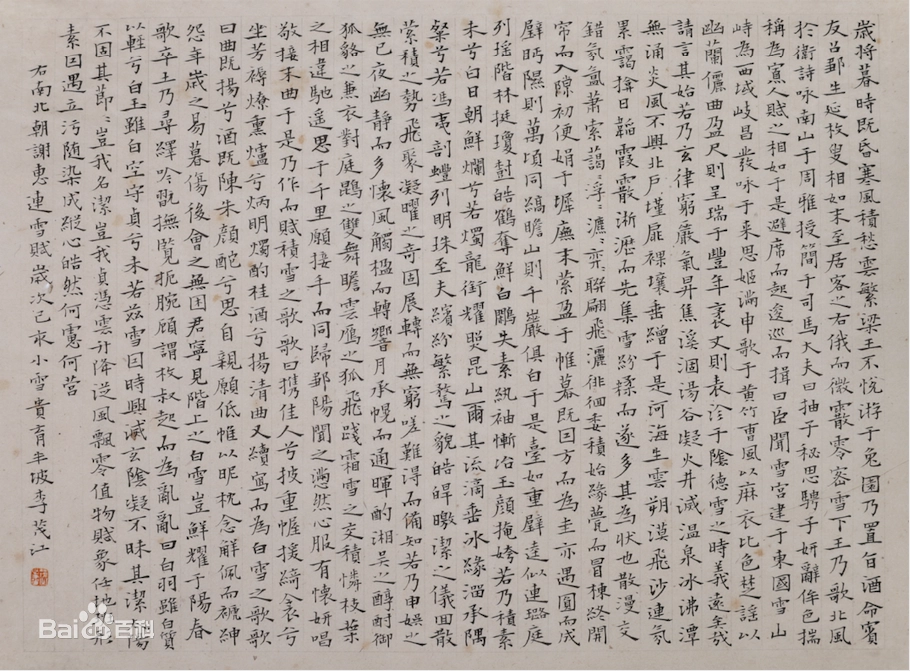 歲將暮時既昏寒風積愁雲繁梁王不悅游于兔園乃置旨酒命賓
友召鄒生延枚叟相如末至居客之右俄而微霰零密雪下王乃歌北風
於衛詩咏南山于周雅授簡于司馬大夫曰抽子秘思騁子妍辭侔色揣
稱為寡人賦之相如于是避席而起逡巡而揖曰臣聞雪宮建于東國雪山
峙為西域岐昌發咏于來思姬滿申歌于黃竹曹風以麻衣比色楚謠以
幽蘭儷曲盈尺則呈瑞于豐年袤丈則表沴于陰德雪之時義遠矣哉
請言其始若乃玄律窮嚴氣昇焦溪涸湯谷凝火井滅溫泉冰沸潭
無涌炎風不興北戶墐扉裸壤垂繒于是河海生雲朔漠飛沙連氛
累靄揜日韜霞霰淅瀝而先集雪紛糅而遂多其為狀也散漫交
錯氛氳蕭索藹〻浮〻瀌〻弈〻聯翩飛灑徘徊委積始緣甍而冒棟終開
簾而入隙初便娟于墀廡末縈盈于帷幕既因方而為圭亦遇圓而成
璧眄隰則萬頃同縞瞻山則千巖俱白于是臺如重璧逵似連璐庭
列瑤階林挺瓊樹皓鶴奪鮮白鷴失素紈袖慚冶玉顏掩姱若乃積素
未兮白日朝鮮爛兮若燭龍銜耀照昆山爾其流滴垂冰緣溜承隅
粲兮若馮夷剖蠣列明珠至夫繽紛繁騖之貌皓皞曒潔之儀回散
縈積之勢飛聚凝曜之奇固展轉而無窮嗟難得而備知若乃申娛之
無已夜幽靜而多懷風觸楹而轉響月承幌而通暉酌湘吳之醇酎御
狐貉之兼衣對庭鵾之雙舞瞻雲鴈之孤飛踐霜雪之交積憐枝葉
之相違馳遥思于千里願接手而同歸鄒陽聞之懣然心服有懷妍唱
敬接末曲于是乃作而賦積雪之歌歌曰攜佳人兮披重幄援綺衾兮
坐芳褥燎熏爐兮炳明燭酌桂酒兮揚清曲又續寫而為白雪之歌歌
曰曲既揚兮酒既陳朱顏酡兮思自親願低帷以昵枕念解佩而褫紳
怨年歲之易暮傷後會之無因君寧見階上之白雪豈鮮耀于陽春
歌卒王乃尋繹吟翫撫覽扼腕顧謂枚叔起而為亂亂曰白羽雖白質
以輕兮白玉雖白空守貞兮未若茲雪因時興滅玄陰凝不昧其潔陽
不固其節〻豈我名潔豈我貞憑雲升降從風飄零值物賦象任地
素因遇立污隨染成縱心皓然何慮何營
右南北朝謝惠連雪賦歲次己亥小雪貴育半坡李茂江
Bai百科